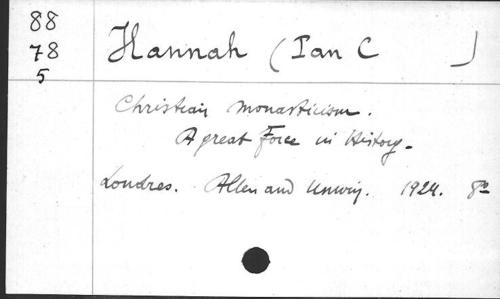 88
78
5
Hannah (Ian C )
Christian Monasticism.
A great Force in History.
Londres. Allen and Unwin. 1924. 8º